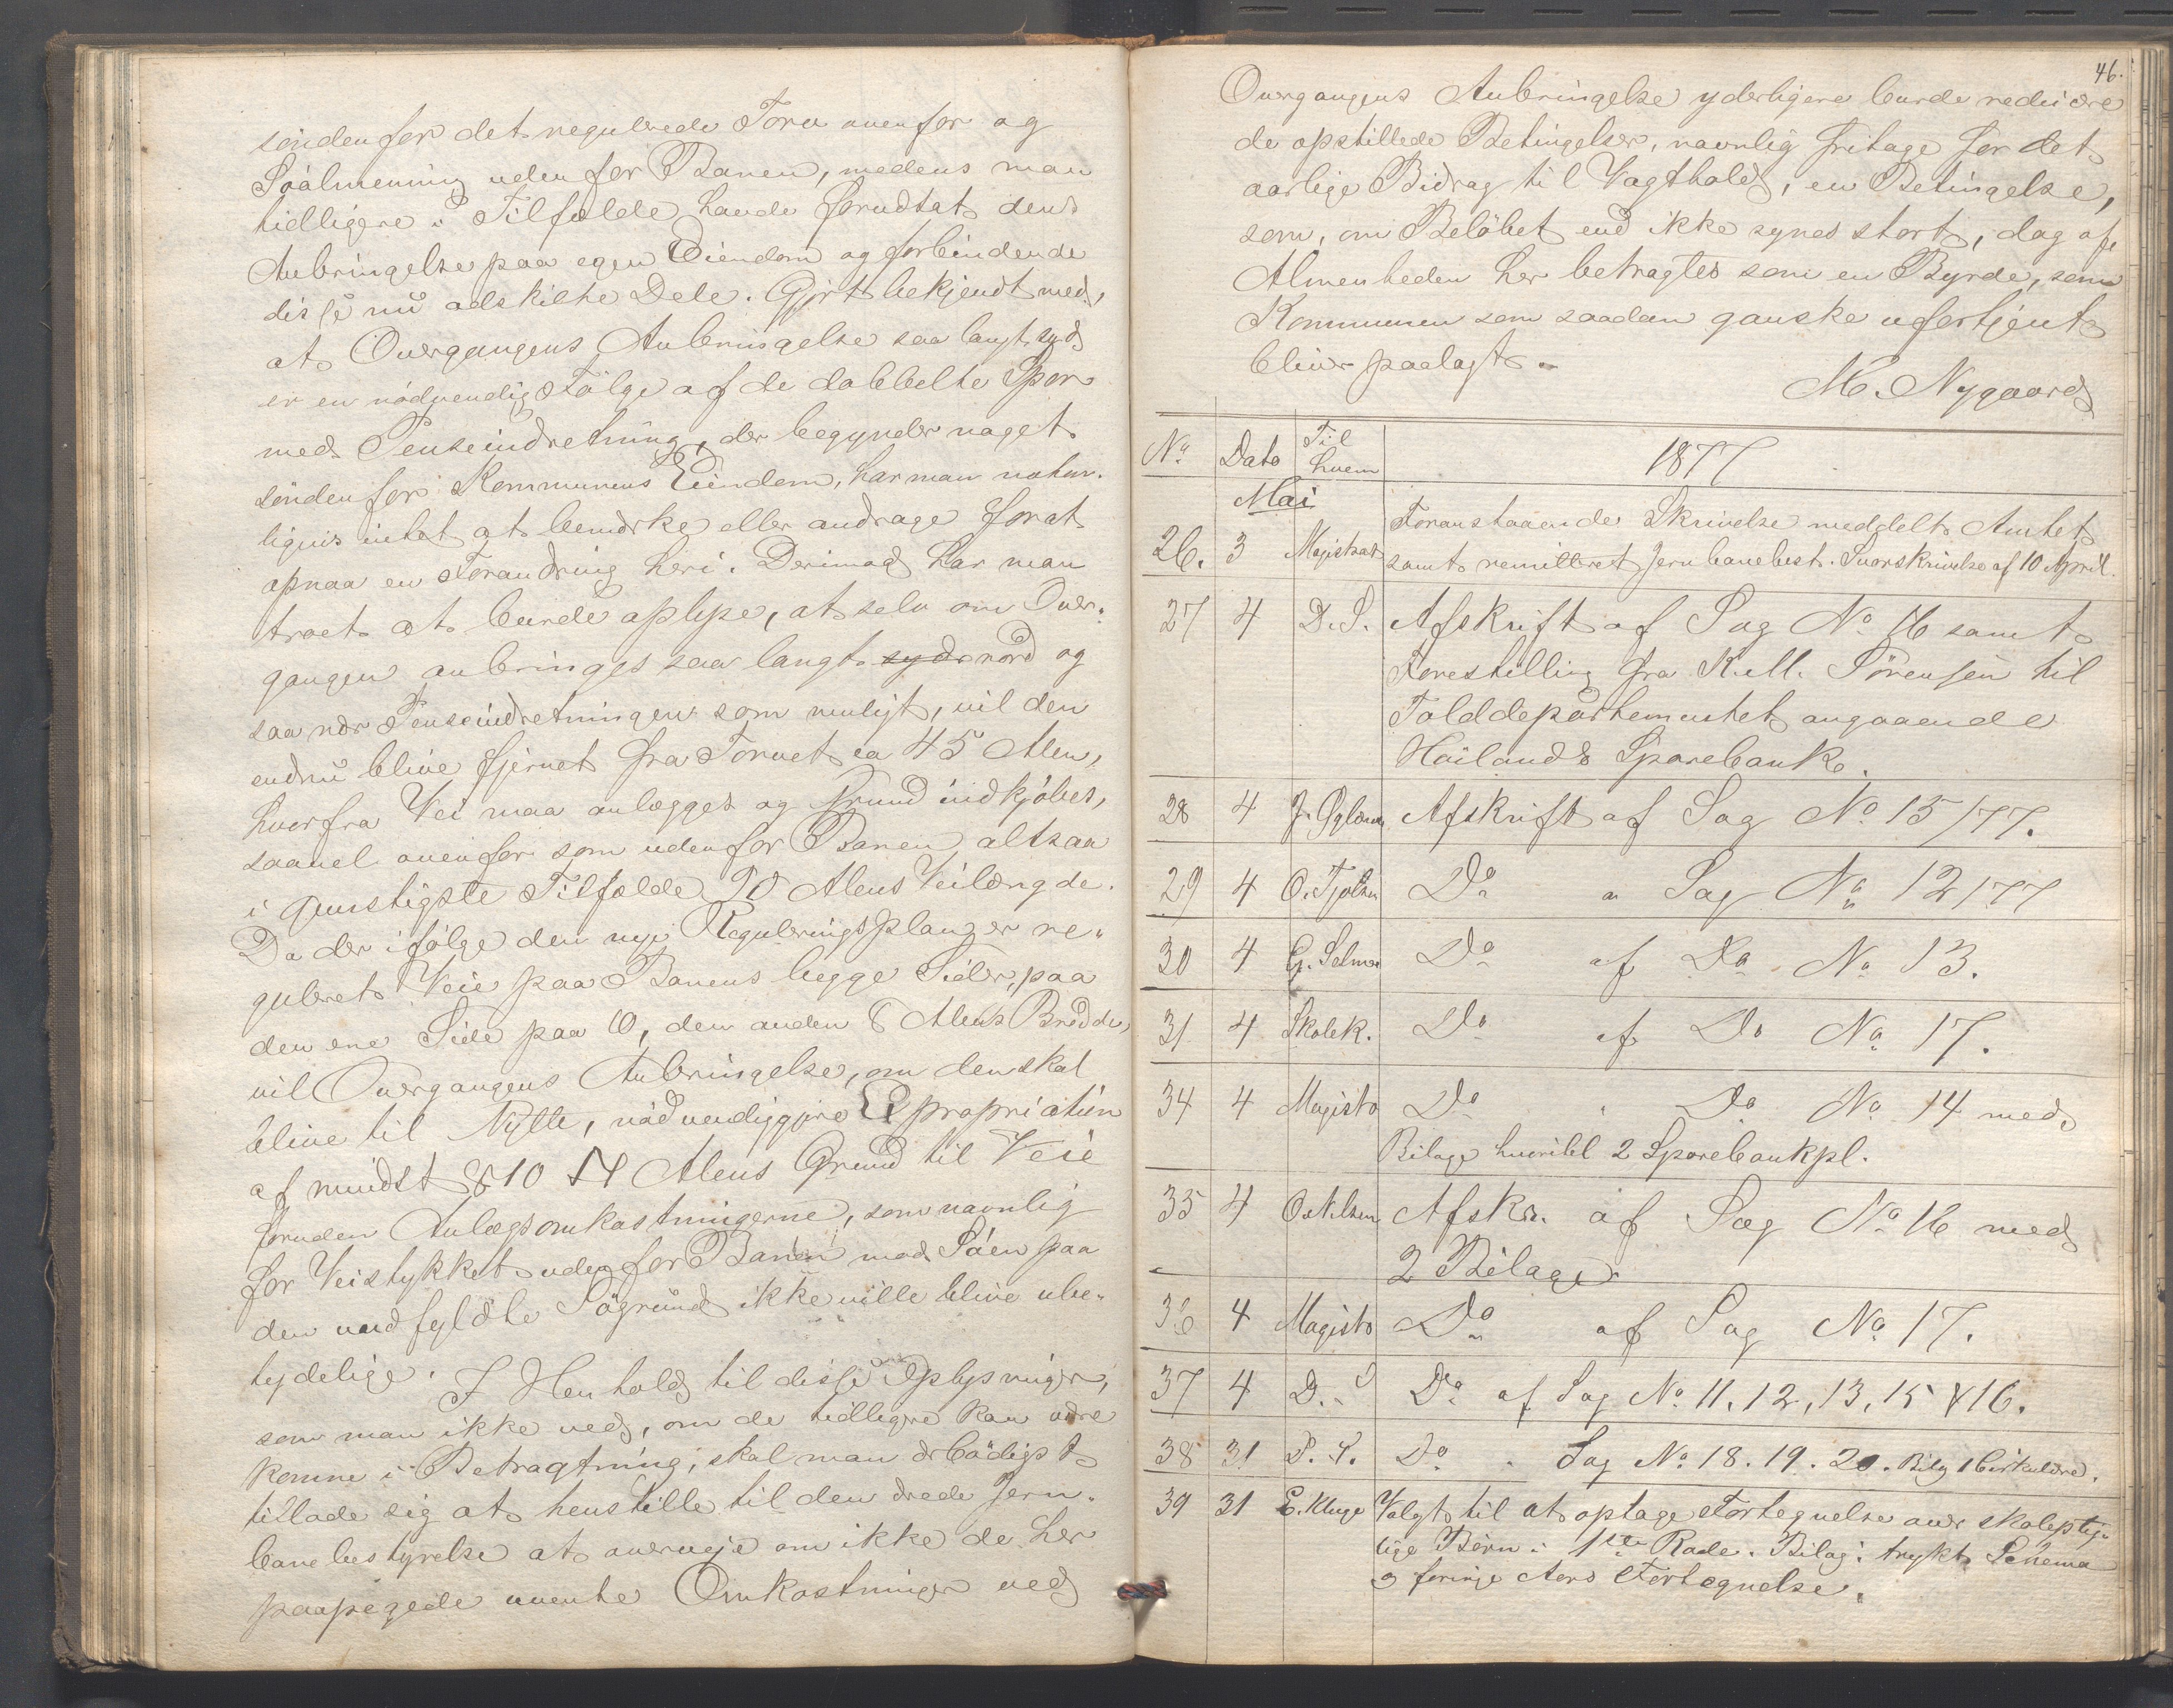 söndenfor det regulerede Torv ovenfor og
Söalmening udenfor Banen, medens man
tidligere i Tilfælde havde forudsat dens
Anbringelse paa egen Eiendom og forbindende
disse nu adskilte Dele. Gjort bekjendt med,
at Overgangens Anbringelse saa langt syd
er en nödvendig Fölge af de dobbelte Spor
med Penseindretning, der begynder noget
söndenfor Kommunens Eiendom, har man natur-
ligvis intet at bemærke eller andrage for at
opnaa en Forandring heri. Derimod har man
troet at burde oplyse, at selv om Over-
gangen anbringes saa langt syd nord og
saa nær Penseindretningen som muligt, vil den
endnu blive fjernet fra Torvet ca 45 Alen,
hvorfra Vei maa anlægges og Grund indkjöbes,
saavel ovenfor som udenfor Banen altsaa
i gunstigste Tilfælde 90 Alens Veilængde.
Da der ifölge den nye Reguleringsplan er re-
guleret Veie paa Banens begge Sider, paa
den ene Side paa 10, den anden 8 Alens Bredde,
vil Overgangens Anbringelse, om den skal
blive til Nytte, nödvendiggjøre Expropriation
af mindst 810 Alens Grund til Veie
foruden Anlægsomkostningerne, som navnlig
for Veistykket udenfor Banen mod Söen paa
den uudfyldte Sögrund ikke ville blive ube-
tydelige.
I Henhold til disse Oplysninger,
som man ikke ved, om de tidligere kan være
komne i Betragtning, skal man ærbödigst
tillade sig at henstille til den ærede Jern-
banebestyrelse at overveje om ikke de her
paapegede uventede Omkostninger ved
46.
Overgangens Anbringelse yderligere burde reducere
de opstillede Betingelser, navnlig fritage for det
aarlige Bidrag til Vagthold, en Betingelse,
som, om Belöbet end ikke synes stort, dog af
Almenheden her betragtes som en Byrde, som
Kommunen som saadan ganske ufortjent
bliver paalagt.
M. Nygaard
No Dato Til hvem 1877
Mai
26. 3 Magistrat Foranstaaende Skrivelse meddelt Amtet
samt remitteret Jernbanebest. Svarskrivelse af 10 April.
27 4 D.S. Afskrift af Sag No 16 samt
Forestilling fra K. M. Sörensen til
Tolddepartementet angaaende
Höilands Sparebank.
28 4 J. Oglænd Afskrift af Sag No 15/77.
29 4 O. Tjötsen Do " Sag No 12/77
30 4 G. Selmer Do af Do No 13.
31 4 Skolek. Do af Do No 17.
34 4 Magistr Do " Do No 14 med
Bilage hvoribl 2 Sparebankpl.
35 4 O. Nilsen Afskr. af Sag No 16 med
2 Bilage
36 4 Magistr Do af Sag No 17.
37 4 D. S Do af Sag No 11. 12, 13, 15 & 16.
38 31 D. S. Do " Sag No 18. 19. 20. Bilag 1 Cirkulære.
39 31 E. Kluge Valgt til at optage Fortegnelse over skoleplig-
tige Börn i 1ste Rode. Bilag: trykt Schema
og forrige Aars Fortegnelse.